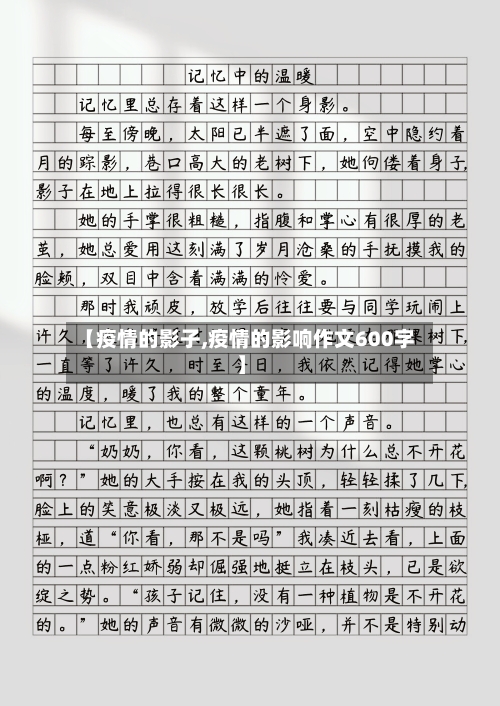 记忆中的温暖
记忆里总存着这样一个身影。
每至傍晚，太阳已半遮了面，空中隐约着
月的踪影，巷口高大的老树下，她佝偻着身子，
影子在地上拉得很长很长。
她的手掌很粗糙，指腹和掌心有很厚的老
茧，她总爱用这刻满了岁月沧桑的手抚摸我的
脸颊，双目中含着满满的怜爱。
那时我顽皮，放学后往往要与同学玩闹上
许久，
树下，
【疫情的影子,疫情的影响作文600字
】
一直等了许久，时至今日，我依然记得她掌心
的温度，暖了我的整个童年。
记忆里，也总有这样的一个声音。
“奶奶，你看，这颗桃树为什么总不开花
啊？”她的大手按在我的头顶，轻轻揉了几下，
脸上的笑意极淡又极远，她指着一刻枯瘦的枝
桠，道“你看，那不是吗”我凑近去看，上面
的一点粉红娇弱却倔强地挺立在枝头，已是欲
绽之势。“孩子记住，没有一种植物是不开花
的。”她的声音有微微的沙哑，并不是特别动